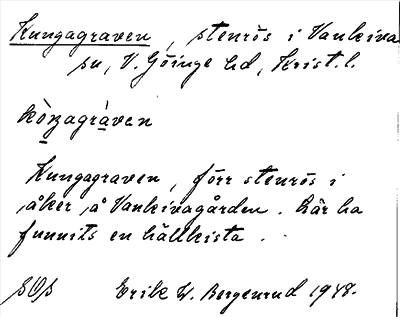 Kungagraven, stenrös i Vankiva
sn, V. Göinge hd, Krist. l.
kòŋagràven
Kungagraven, förr stenrös i
åker å Vankivagården. Där ha
funnits en hällkista.
SOS Erik W. Bergenrud 1948.